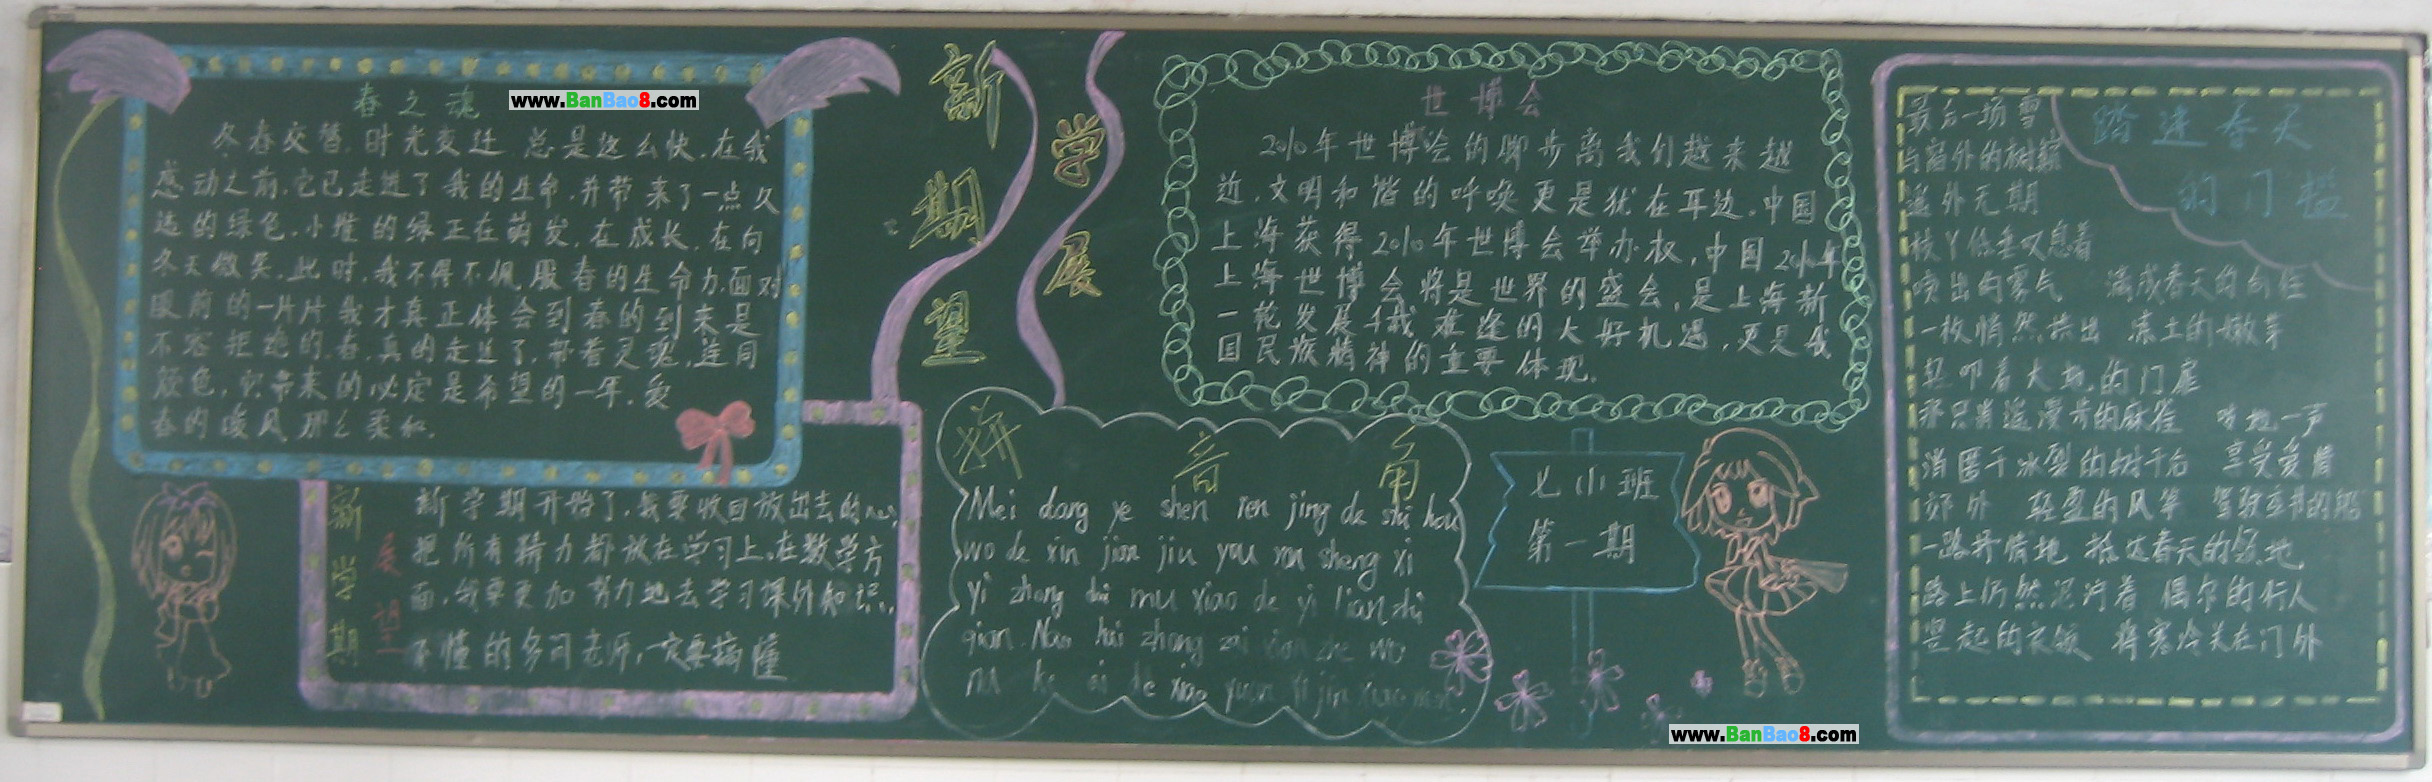 春之魂
www.BanBao8.com
冬春交替,时光变迁,总是这么快,在我
感动之前,它已走进了我的生命,并带来了一点久
违的绿色,小摧的绿正在萌发,在成长,在向
冬天微笑,此时,我不得不佩服春的生命力,面对
眼前的一片片我才真正体会到春的到来是
不容拒绝的,春,真的走近了,带着灵魂,连同
颜色,它带来的必定是希望的一年,爱
春的暖风那么柔和.
新学期
展望
新学期开始了,我要收回放出去的心,
把所有精力都放在学习上,在数学方
面,我要更加努力地去学习课外知识,
不懂的多问老师,一定要搞懂
新期望
学展
拼音角
Mei dang ye shen ren jing de shi hou
wo de xin jian jiu you ren sheng xi
yi zhang
mu xiao de yi lian
qian. Nao hai zhong zai xian zhe wo
世博会
2010年世博会的脚步离我们越来越
近,文明和谐的呼唤更是犹在耳边,中国
上海获得2010年世博会举办权,中国2010年
上海世博会将是世界的盛会,是上海新
一轮发展千载难逢的大好机遇,更是我
国民族精神的重要体现.
七(1)班
第一期
踏进春天
的门槛
最后一场雪
与窗外的树
遥外无期
枝丫低垂叹息着
喷出的雾气 满成春天的向往
一枚悄然拱出 冻土的嫩芽
轻叩着大地的门扉
那只逍遥漫步的麻雀 吱地一声
消匿于冰裂的树干后 享受爱情
郊外 轻盈的风筝 驾驶季节的船
一路抒情地 抵达春天的领地
路上仍然泥泞着 偶尔的行人
竖起的衣领 将寒冷关在门外
www.BanBao8.com